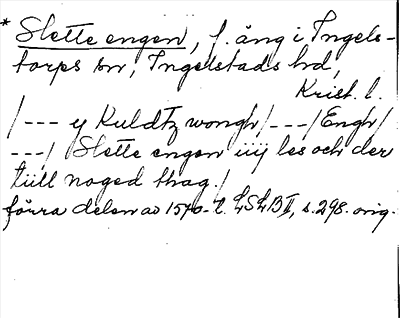 * Slette engen, f. äng i Ingels-
torps sn, Ingelstads hd,
Krist. l.
/--- y Kuldtz wongh/---/Engh/
---/ Slette engen iiij les och der
tiill noged thag./
förra delen av 1570-t. LSLB II, s. 298. orig.